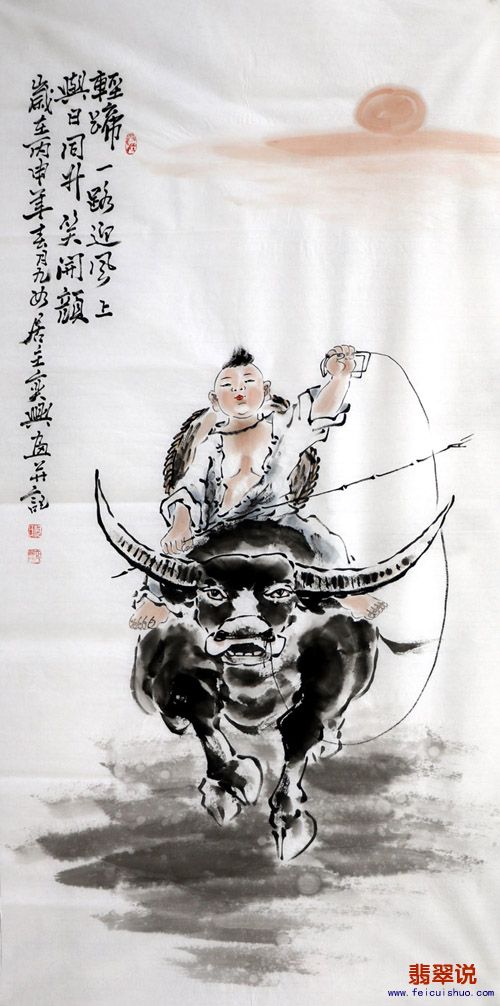 輕蹄一路迎风上
與日同升笑開顏
歲在丙申年春月九如居主奕興画并記
翡翠说
www.feicuishuo.com